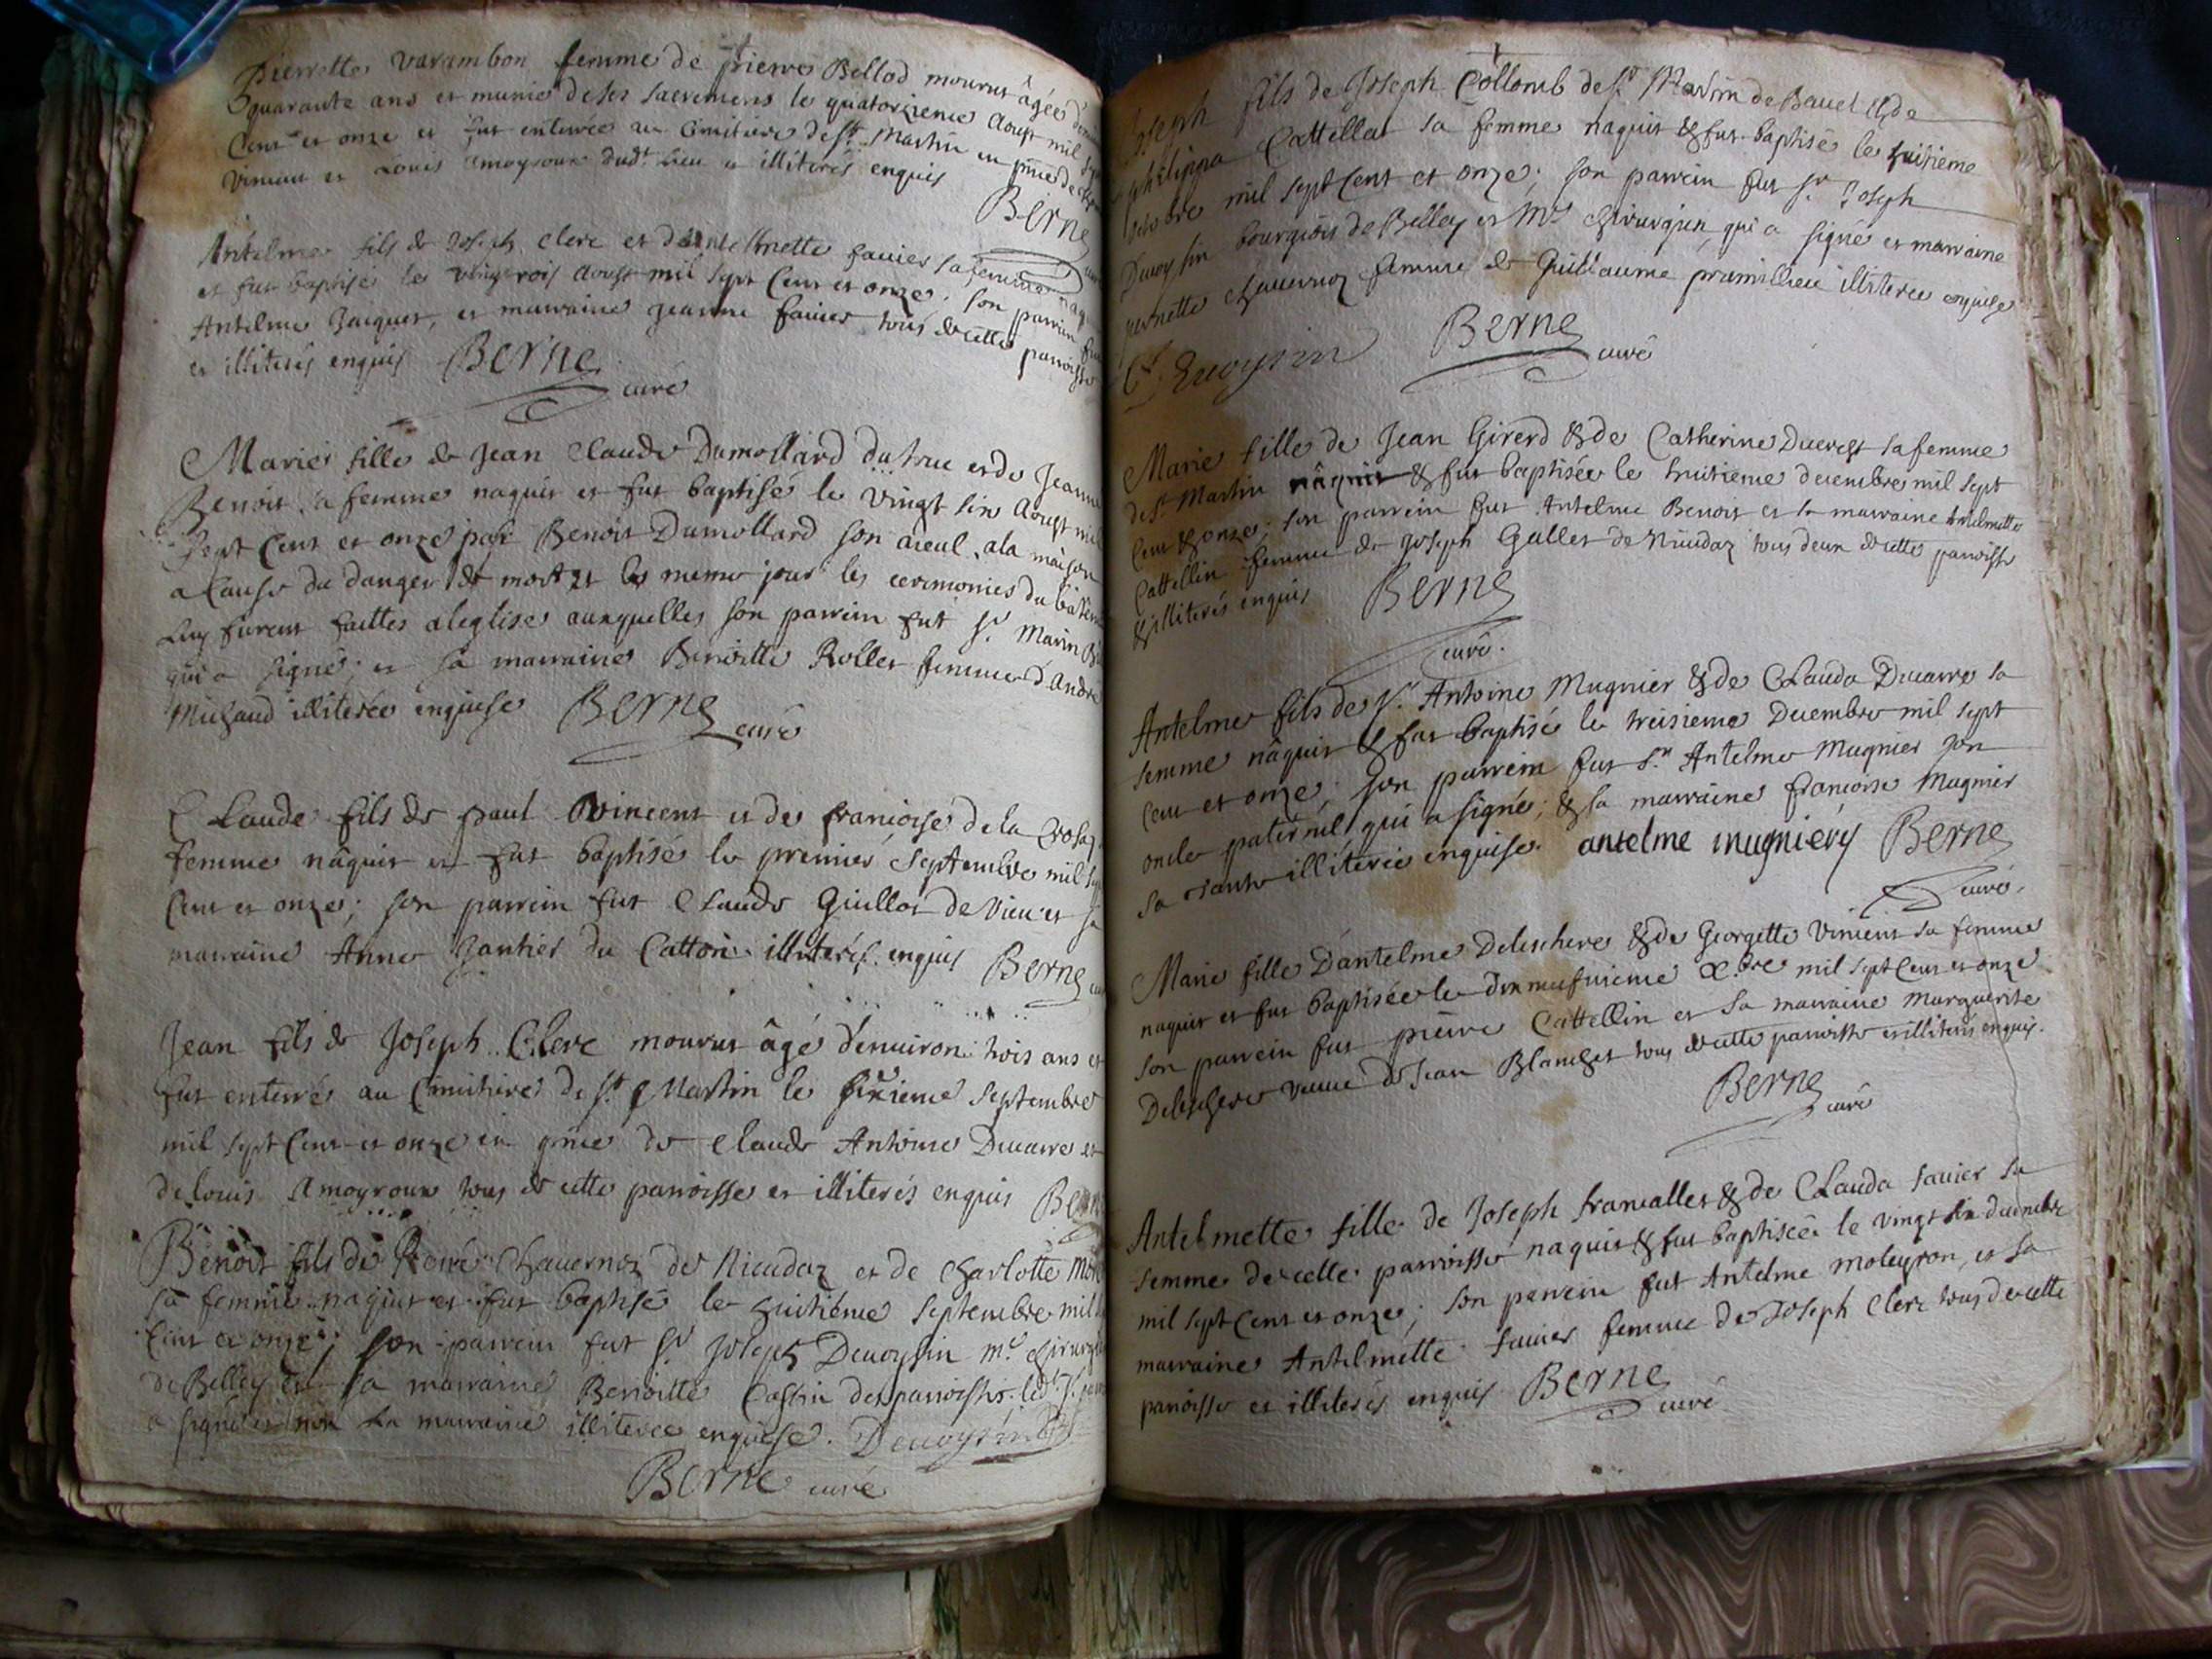 Pierrette Varambon femme de pierre Bellod mourut âgée d'en
quarante ans et munie de ses sacremens le quatorzieme Aoust mil
Cent et onze et fut enterrée au Cimitiere de St Martin en pnce de
et Louis Amoyroux dudt lieu et illiterés enquis
Berne
Antelme fils de Joseph Clerc et d'Antelmette fauier sa femme
et fut baptisé le vingtrois Aoust mil sept Cent et onze. son parrin
Antelme Jacquet, et marraine Jeanne fauier tous de cette parroisse
et illiterés enquis Berne
curé
Marie fille de Jean Claude Dumollard du truc et de Jeanne
Benoit sa femme naquit et fut baptisé le vingt six Aoust mil
sept Cent et onze par Benoit Dumollard son aieul, a la maison
a Cause du danger de mort et le meme jour les ceremonies du
luy furent faittes a leglise auxquelles son parrein fut Sr Marin
qui a signé; et sa marraine Benoitte Rollet femme d'André
Michaud illiterée enquise Berne curé
Claude fils de paul Vincent et de francoise de la Crosaz
femme nâquit et fut baptisé le premier septembre mil
Cent et onze; son parrein fut Claude Guillot de Vieu et sa
marraine Anne Gantier du Catton illiterés enquis Berne
Jean fils de Joseph Clerc mourut âgé d'enuiron trois ans et
fut enterré au Cimitiere de St Martin le sixieme septembre
mil sept Cent et onze en pnce de Claude Antoine Ducarre et
de Louis Amoyroux tous de cette parroisse et illiterés enquis
Benoit fils de Chauernoz de Nicudaz et de Charlotte
sa femme naquit et fut baptisé le huitiéme septembre mil
Cent et onze; son parrein fut Sr Joseph Deuoysin me chirurgien
de Belley et sa marraine Benoitte Castin
a signé et non la marraine illiterée enquise. Deuoysin
Berne curé
Joseph fils de Joseph Collomb de St Martin de Bauel & de
philippa Cattellat sa femme naquit & fut baptisé le huitieme
mil sept Cent et onze; son parrein fut Sr Joseph
Deuoysin bourgeois de Belley et Me chirurgien, qui a signé et marraine
pernette Chauernoz femme de Guillaume pramillieu illiterée enquise
Deuoysin Berne
curé
Marie fille de Jean Girerd & de Catherine Ducrest sa femme
de St Martin nâquit & fut baptisée le huitieme decembre mil sept
Cent & onze; son parrein fut Antelme Benoit et sa marraine Antelmette
Cattellin femme de Joseph Gallet de Nicudaz tous deux de cette parroisse
& illiterés enquis Berne
curé.
Antelme fils de Sr Antoine Mugnier & de Clauda Ducarre sa
femme nâquit & fut baptisé le treisieme Decembre mil sept
Cent et onze; son parrein fut Sr Antelme Mugnier son
oncle paternel qui a signé; & sa marraine francoise Mugnier
sa tante illiterée enquise. antelme mugniery Berne
curé.
Marie fille D'antelme Deleschere & de Georgette Vincent sa femme
naquit et fut baptisée le dixneufuieme Xbre mil sept Cent et onze.
son parrein fut pierre Cattellin et sa marraine Marguerite
Deleschere veuue de Jean Blanchet tous de cette parroisse et illiterés enquis.
Berne
curé
Antelmette fille de Joseph francallet & de Clauda fauier sa
femme de cette parroisse naquit & fut baptisée le vingt six decembre
mil sept Cent et onze; son parrein fut Antelme moleyron, et sa
marraine Antelmette fauier femme de Joseph Clerc tous de cette
parroisse et illiterés enquis Berne
curé